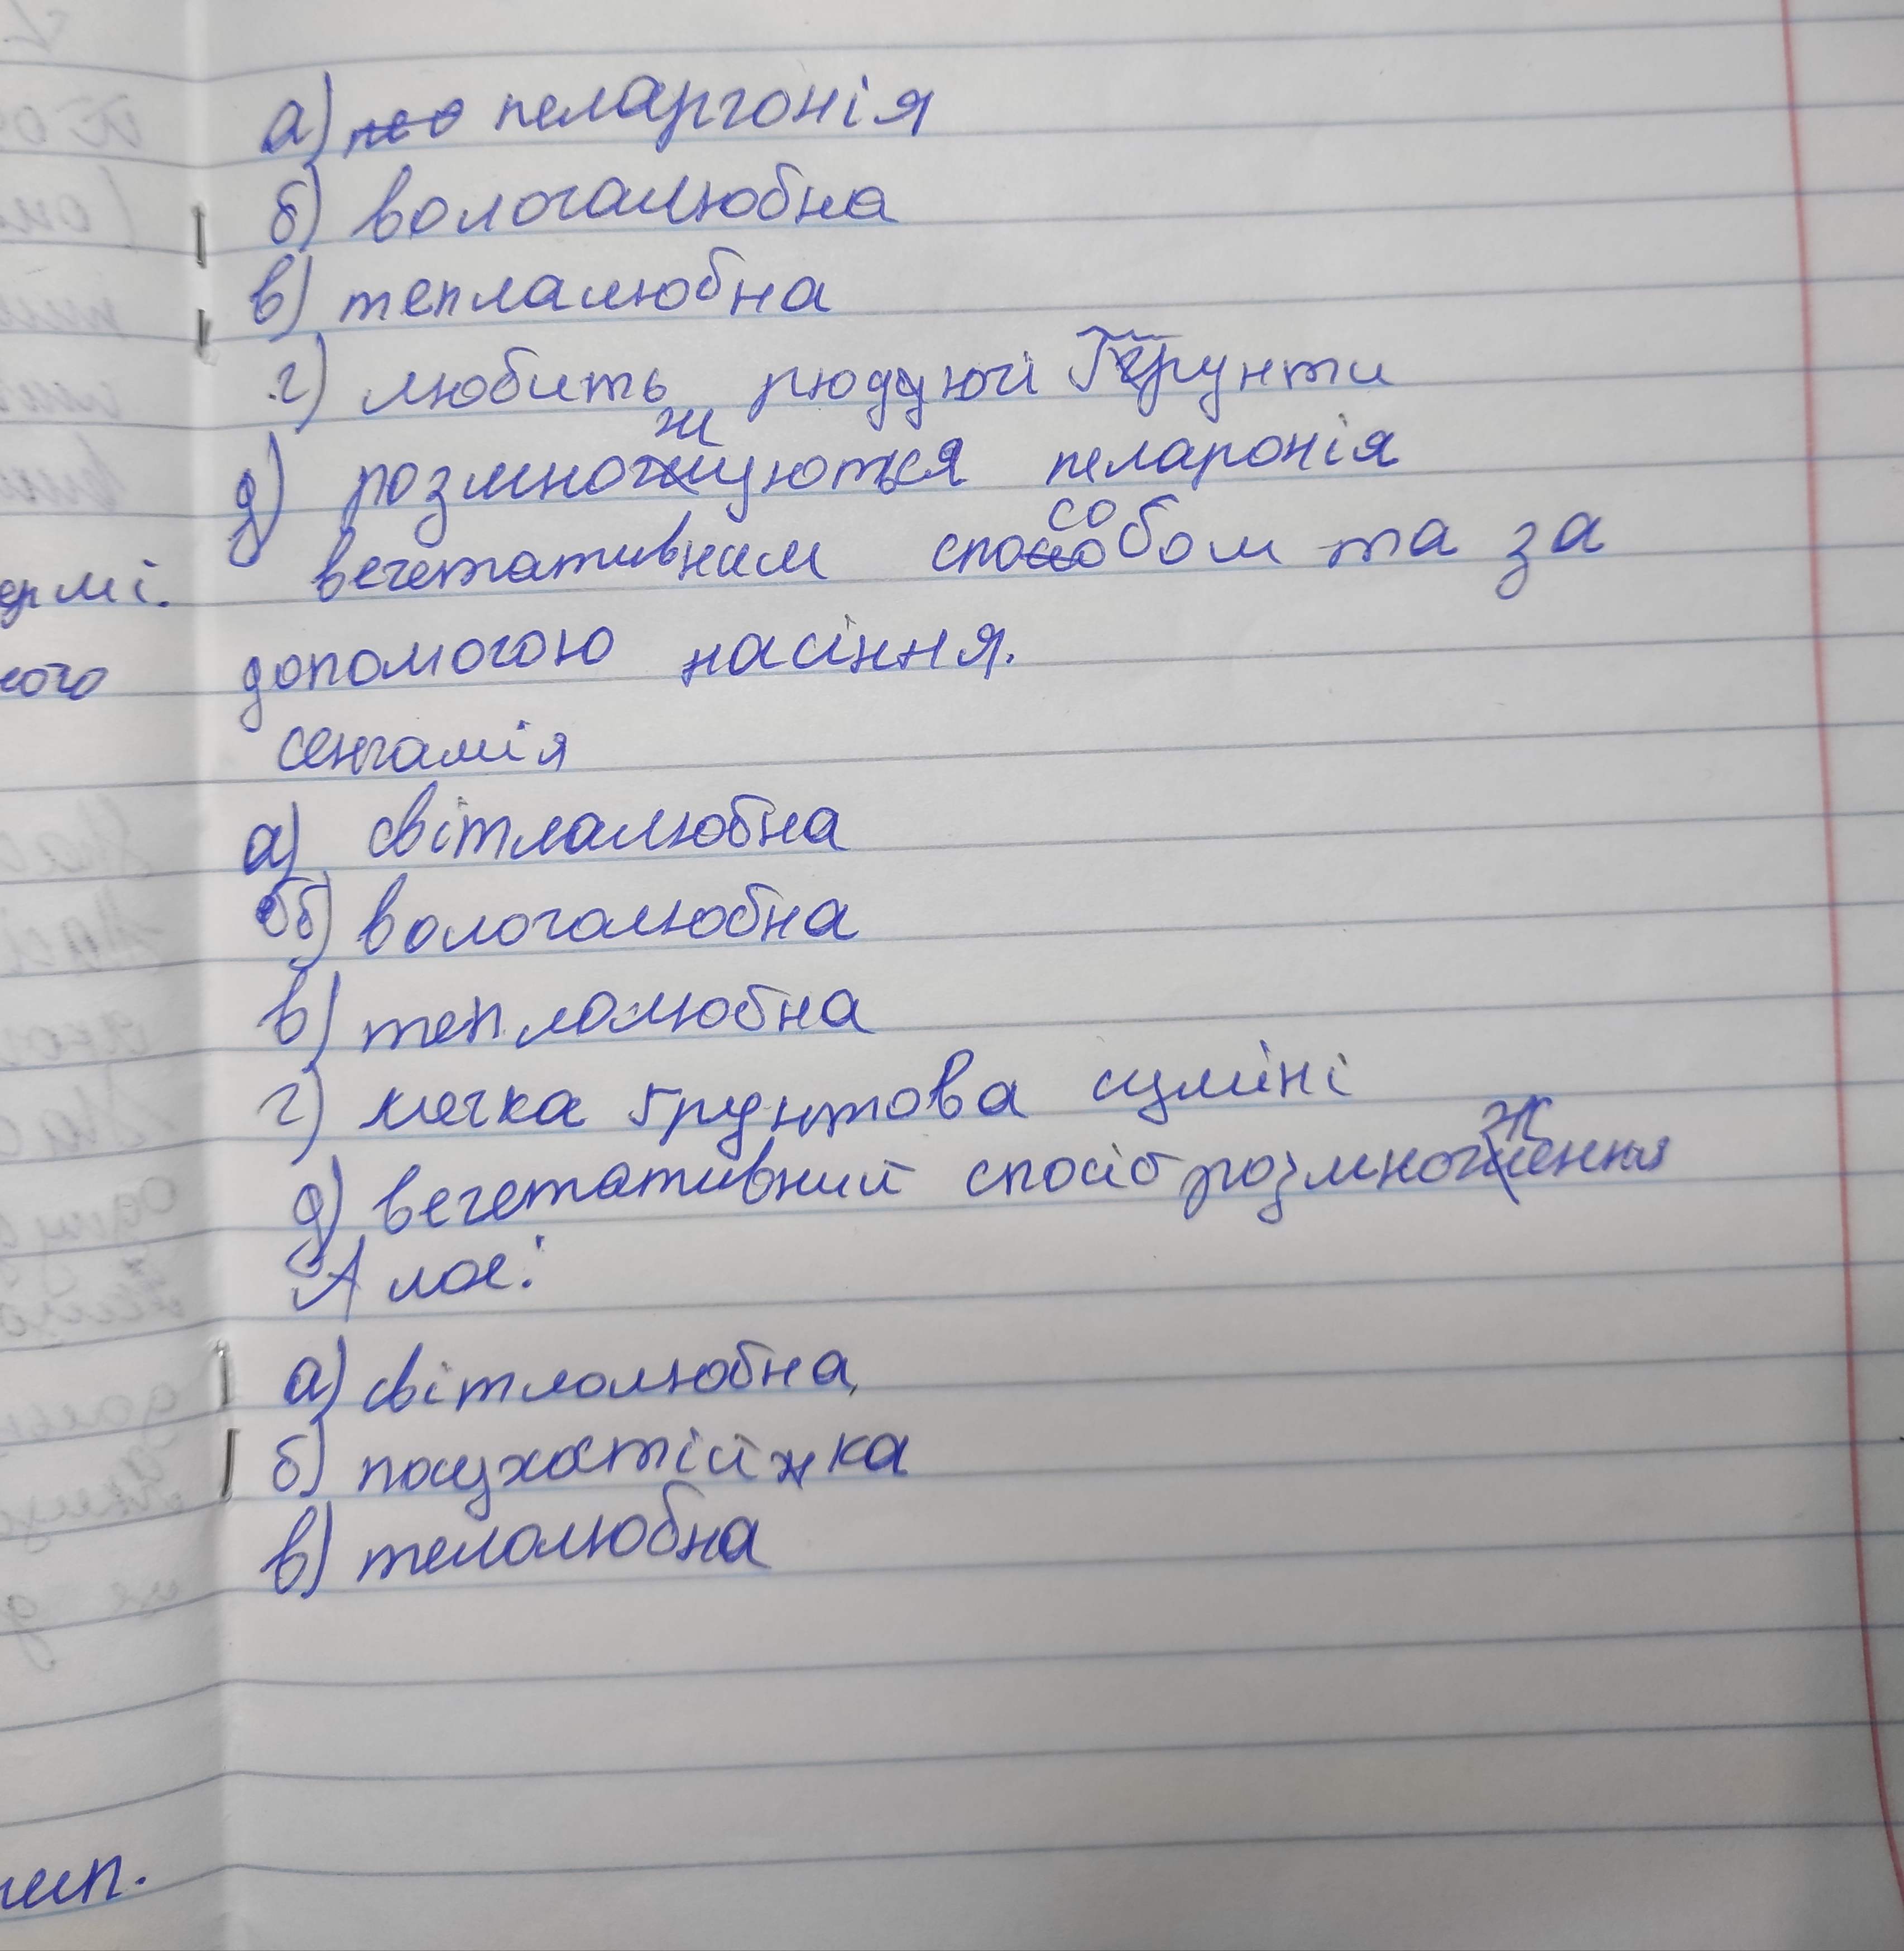 а) пеларгонія
б) вологалюбна
в) теплалюбна
г) любить рюдуючі Ґрунти
д) розмножуються пеларонія
вегетативним способом та за
ермі.
допомогою насіння.
ного
сенгамія
а) світлалюбна
б) вологолюбна
в) теплолюбна
г) мягка ґрунтова суміні
д) вегетативний спосіб розмноження
Алое:
а) світлолюбна,
б) посухостійка
в) телолюбна